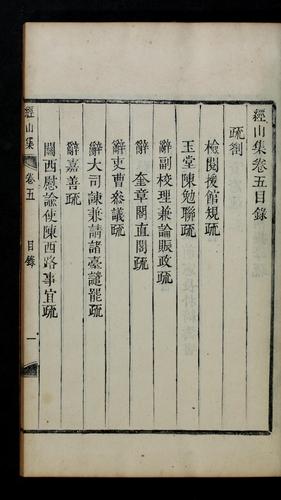 經山集卷五目錄
疏劄
檢閱援館規疏
玉堂陳勉聯疏
辭副校理兼論賑政疏
辭奎章閣直閣疏
辭吏曹參議疏
辭大司諫兼請諸臺譴罷疏
辭嘉善疏
關西慰諭使陳西路事宜疏
經山集
卷五
目錄
一